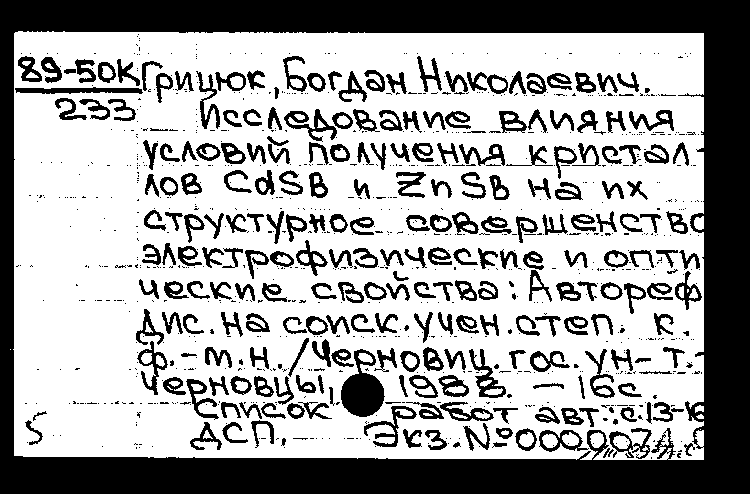 89-50К Грицюк, Богдан Николаевич.
233
Исследование влияния
условий получения кристал-
лов CdSB и ZnSB на их
структурное совершенство
электрофизические и опти
ческие свойства: Автореф
дис. на соиск. учен. степ. к.
ф.-м.н. /Черновиц. гос. ун-т.-
Черновцы, 1988. — 16с.
Список работ авт.: с.13-16
5 ДСП. Экз. №000007